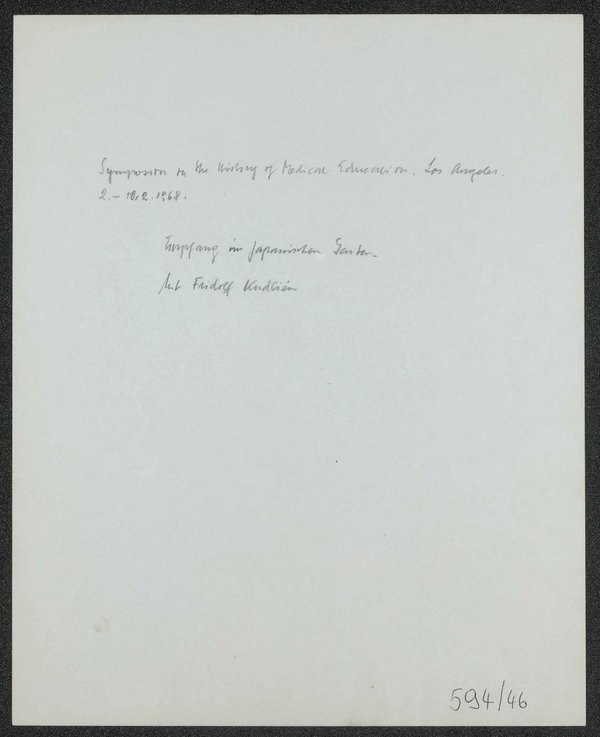 Symposium on the History of Medical Education. Los Angeles.
2.-10.2.1968.
Empfang im Japanischen Garten.
Mit Fridolf Kudlien
594/46